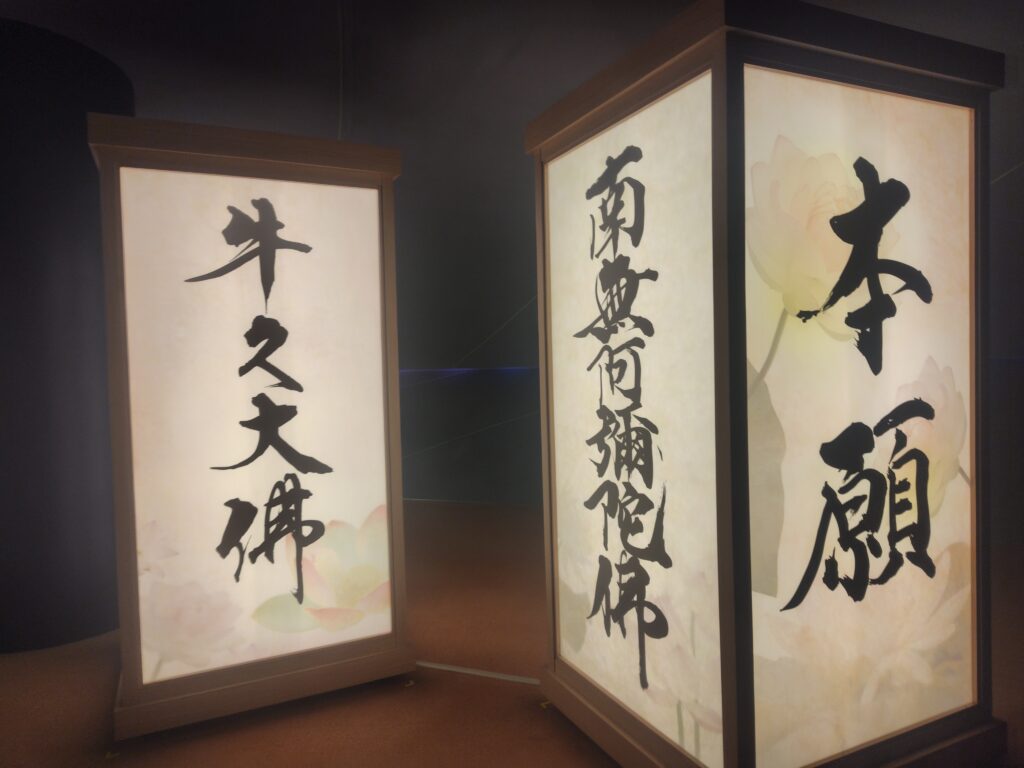 牛久大佛
南無阿彌陀佛
本願